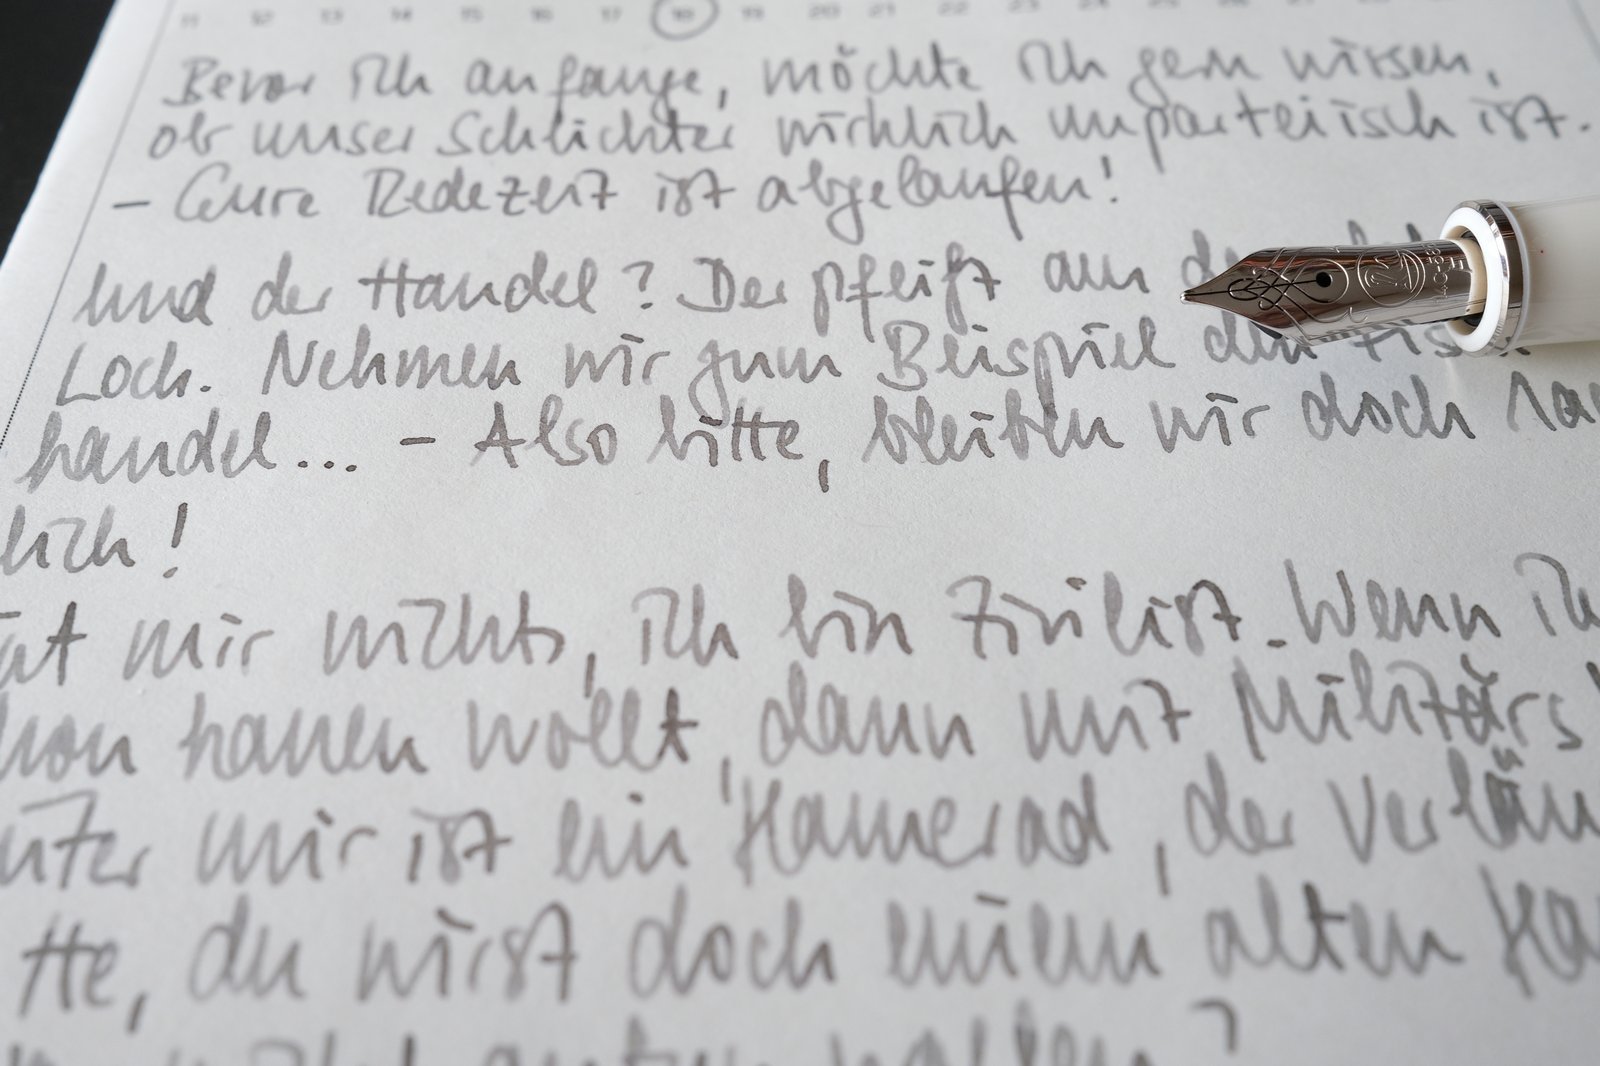 11 12 13 14 15 16 17 18 19 20 21 22 23 24 25 26 27 28
Bevor ich anfange, möchte ich gern wissen,
ob unser Schlichter wirklich unparteiisch ist.
– Eure Redezeit ist abgelaufen!
Und der Handel? Der pfeift aus dem
Loch. Nehmen wir zum Beispiel den Fisch
handel... – Also bitte, bleiben wir doch
lich!
mir nichts, ich bin Zivilist. Wenn ih
hauen wollt, dann mit Militärs
mir ist ein Kamerad, der
tte, du wirst doch einen alten Ka